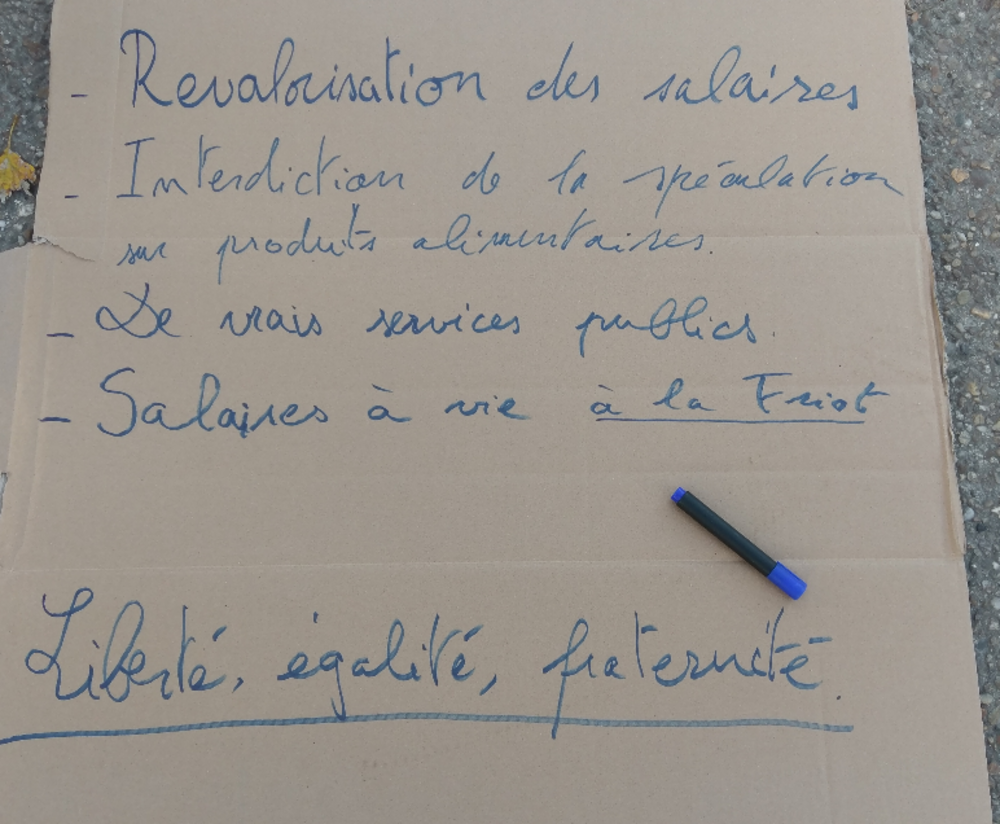 - Revalorisation des salaires
- Interdiction de la spéculation
sur produits alimentaires.
- De vrais services publics.
- Salaires à vie à la Friot
Liberté, égalité, fraternité.